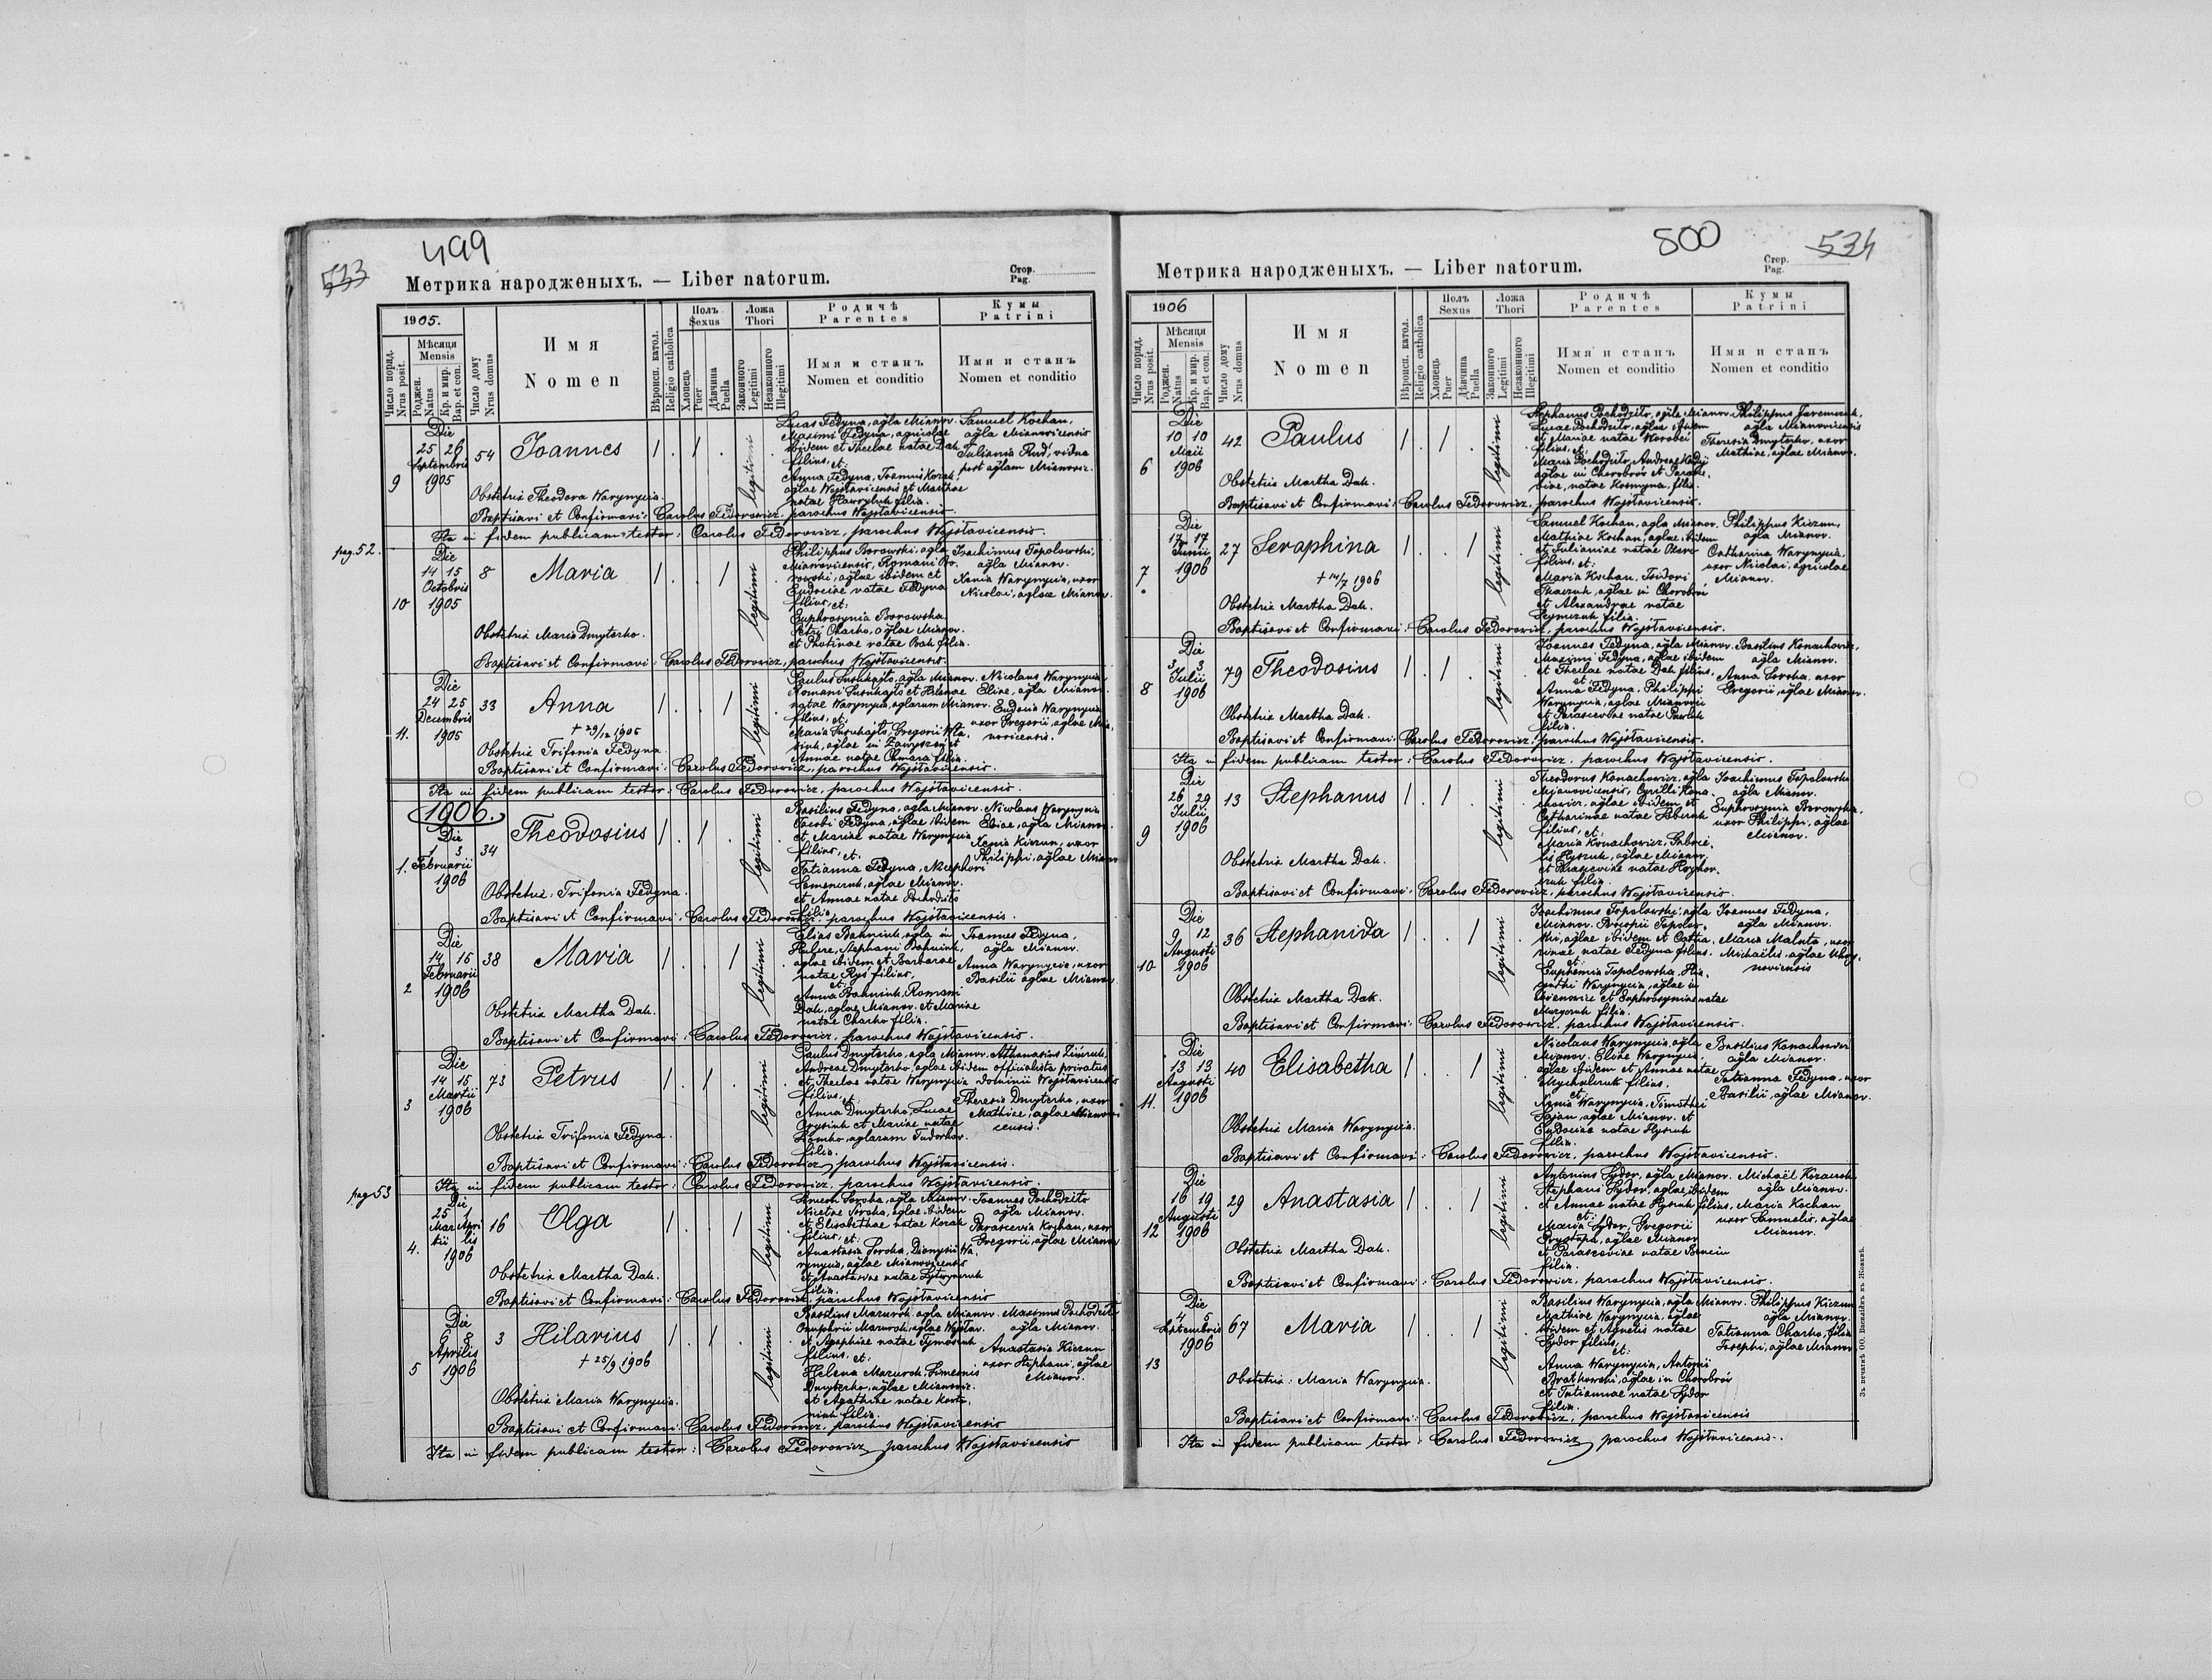 499
533
Метрика народженыхъ. — Liber natorum.
Стор.
Pag.
1905.
Число поряд.
Nrus posit.
Мѣсяця
Mensis
Роджен.
Natus
Кр. и мир.
Bap. et con.
Число дому
Nrus domus
Имя
Nomen
Вѣроисп. катол.
Religio catholica
Полъ
Sexus
Хлопець
Puer
Дѣвчина
Puella
Ложа
Thori
Законного
Legitimi
Незаконного
Illegitimi
Родичѣ
Parentes
Имя и станъ
Nomen et conditio
Кумы
Patrini
Имя и станъ
Nomen et conditio
9
Die
25 26
Septembris
1905
54
Joannes
1 . 1 .
legitimi
Lucas Fedyna, agla Mianov.
Maximi Fedyna, agricolae
ibidem et Theclae natae Dak
filius, et:
Anna Fedyna, Joannis Kozak,
aglae Wojslavicensis et Marthae
natae Hawryluk filia.
Samuel Kochan,
agla Mianovicensis
Juliania Rud, vidua
post aglam Mianovic.
Obstetrix Theodora Warynycia.
Baptisavi et Confirmavi: Carolus Fedorowicz, parochus Wojslavicensis.
Ita in fidem publicam testor: Carolus Fedorowicz, parochus Wojslavicensis.
pag. 52.
10
Die
14 15
Octobris
1905
8
Maria
1 . . 1
legitimi
Philippus Borowski, agla
Mianovicensis, Romani Bo-
rowski, aglae ibidem et
Eudociae natae Fedyna
filius, et:
Euphrosynia Borowska,
Petri Charko, aglae Mianov.
et Photinae natae Bak filia.
Joachimus Topolowski,
agla Mianov.
Xenia Warynycia, uxor
Nicolai, aglae Mianov.
Obstetrix Maria Dmyterko.
Baptisavi et Confirmavi: Carolus Fedorowicz, parochus Wojslavicensis.
11.
Die
24 25
Decembris
1905
33
Anna
+ 29/12 1905
1 . . 1
legitimi
Paulus Susukajlo, agla Mianov.
Romani Susukajlo et Helenae
natae Warynycia, aglarum Mianov.
filius, et:
Annae natae filia.
Nicolaus Warynycia
Eliae, agla Mianov.
Eudocia Warynycia
uxor Gregorii, aglae Mia-
novicensis.
Obstetrix Trifonia Fedyna
Baptisavi et Confirmavi: Carolus Fedorowicz, parochus Wojslavicensis.
Ita in fidem publicam testor: Carolus Fedorowicz, parochus Wojslavicensis.
1906.
1.
Die
1 3
Februarii
1906
34
Theodosius
1 . 1 .
legitimi
Basilius Fedyna, agla Mianov.
Jacobi Fedyna, aglae ibidem
et Mariae natae Warynycia
filius, et:
Tatianna Fedyna, Nicephori
Semeniuk, aglae Mianov.
et Annae natae Pochodzilo
filia.
Nicolaus Warynycia
Eliae, agla Mianov.
Xenia Kiczun, uxor
Philippi, aglae Mianov.
Obstetrix Trifonia Fedyna.
Baptisavi et Confirmavi: Carolus Fedorowicz, parochus Wojslavicensis.
2
Die
14 15
Februarii
1906
38
Maria
1 . . 1
legitimi
Elias Bahniuk, agla in
Hulcze, Stephani Bahniuk,
aglae ibidem et Barbarae
natae Rys filius,
et:
Anna Bahniuk, Romani
Dak, aglae Mianov. et Mariae
natae Charko filia.
Joannes Fedyna,
agla Mianov.
Anna Warynycia, uxor
Basilii aglae Mianov.
Obstetrix Martha Dak.
Baptisavi et Confirmavi: Carolus Fedorowicz, parochus Wojslavicensis.
3
Die
14 15
Martii
1906
73
Petrus
1 . 1 .
legitimi
Paulus Dmyterko, agla Mianov.
Andreae Dmyterko, aglae ibidem
et Theclae natae Warynycia
filius, et:
Anna Dmyterko, Lucae
et Mariae natae
aglarum Tudorkov.
filia.
Athanasius
officialista privatus
Dominii Wojslavicensis
Theresia Dmyterko, uxor
Mathiae, aglae Mianovi-
censis.
Obstetrix Trifonia Fedyna.
Baptisavi et Confirmavi: Carolus Fedorowicz, parochus Wojslavicensis.
Ita in fidem publicam testor: Carolus Fedorowicz, parochus Wojslavicensis.
pag 53
4.
Die
25 1
Mar Apri
tii lis
1906
16
Olga
1 . . 1
legitimi
Soroka, agla Mianov.
Nicetae Soroka, aglae ibidem
et Elisabethae natae Kozak
filius, et:
Anastasia Soroka, Dionysii Wa-
rynycia, aglae Mianovicensis
et Anastasiae natae Lytwyniuk
filia.
Joannes Pochodzilo
agla Mianov.
Parascevia Kochan, uxor
Gregorii, aglae Mianov.
Obstetrix Martha Dak.
Baptisavi et Confirmavi: Carolus Fedorowicz, parochus Wojslavicensis
5
Die
6 8
Aprilis
1906
3
Hilarius
+ 25/9 1906
1 . 1 .
legitimi
Basilius Mazurok, agla Mianov.
Onuphrii Mazurok, aglae Wojslav.
et Agaphiae natae Tymosiuk
filius, et:
Helena Mazurok, Simeonis
Dmyterko, aglae Mianovic.
et Agathiae natae
filia.
Maximus Pochodzilo
agla Mianov.
Anastasia Kiczun
uxor Stephani, aglae
Mianov.
Obstetrix Maria Warynycia.
Baptisavi et Confirmavi: Carolus Fedorowicz, parochus Wojslavicensis
Ita in fidem publicam testor: Carolus Fedorowicz parochus Wojslavicensis
500
534
Метрика народженыхъ. — Liber natorum.
Стор.
Pag.
1906
Число поряд.
Nrus posit.
Мѣсяця
Mensis
Роджен.
Natus
Кр. и мир.
Bap. et con.
Число дому
Nrus domus
Имя
Nomen
Вѣроисп. катол.
Religio catholica
Полъ
Sexus
Хлопець
Puer
Дѣвчина
Puella
Ложа
Thori
Законного
Legitimi
Незаконного
Illegitimi
Родичѣ
Parentes
Имя и станъ
Nomen et conditio
Кумы
Patrini
Имя и станъ
Nomen et conditio
6
Die
10 10
Maii
1906
42
Paulus
1 . 1 .
legitimi
Stephanus Pochodzilo, agla Mianov.
Lucae Pochodzilo, aglae ibidem
et Mariae natae Worobec
filius, et:
Maria Pochodzilo, Andreae
aglae in Chorobrow et Parasce-
viae, natae Kosmyna, filia.
Philippus Jaremczuk,
agla Mianovicensis
Theresia Dmyterko, uxor
Mathiae, aglae Mianov.
Obstetrix Martha Dak.
Baptisavi et Confirmavi: Carolus Fedorowicz, parochus Wojslavicensis.
7
Die
17 17
Junii
1906
27
Seraphina
+ 14/7 1906
1 . . 1
legitimi
Samuel Kochan, agla Mianov.
Mathiae Kochan, aglae ibidem
et Julianiae natae
filius, et:
Maria Kochan, Isidori
Tkaczuk, aglae in Chorobrow
et Alexandrae natae
filia.
Philippus Kiczun,
agla Mianov.
Catharina Warynycia,
uxor Nicolai, agricolae
Mianov.
Obstetrix Martha Dak.
Baptisavi et Confirmavi: Carolus Fedorowicz, parochus Wojslavicensis.
8
Die
3 3
Julii
1906
79
Theodosius
1 . 1 .
legitimi
Joannes Fedyna, agla Mianov.
Maximi Fedyna, aglae ibidem
et Theclae natae Dak filius,
et:
Anna Fedyna, Philippi
Warynycia, aglae Mianovic.
et Parasceviae natae Pawluk
filia.
Basilius Konachowicz,
agla Mianov.
Anna Soroka, uxor
Gregorii, aglae Mianov.
Obstetrix Martha Dak.
Baptisavi et Confirmavi: Carolus Fedorowicz, parochus Wojslavicensis.
Ita in fidem publicam testor: Carolus Fedorowicz, parochus Wojslavicensis.
9
Die
26 29
Julii
1906
13
Stephanus
1 . 1 .
legitimi
Theodorus Konachowicz, agla
Mianovicensis, Cyrilli Kona-
chowicz, aglae ibidem et
Catharinae natae
filius, et:
Maria Konachowicz, Gabrie-
lis Hysiuk, aglae Mianov.
et Parasceviae natae
filia.
Joachimus Topolowski
agla Mianov.
Euphrosynia Borowska,
uxor Philippi, aglae
Mianov.
Obstetrix Martha Dak.
Baptisavi et Confirmavi: Carolus Fedorowicz, parochus Wojslavicensis.
10
Die
9 12
Augusti
1906
36
Stephanida
1 . . 1
legitimi
Joachimus Topolowski, agla
Mianov. Procopii Topolow-
ski, aglae ibidem et Catha-
rinae natae Fedyna filius,
et:
Euphemia Topolowska, Hia-
cynthi Warynycia, aglae in
et Euphrosyniae natae
filia.
Joannes Fedyna,
agla Mianov.
Maria Maluta, uxor
Michaelis, aglae Uhry-
noviensis
Obstetrix Martha Dak.
Baptisavi et Confirmavi: Carolus Fedorowicz, parochus Wojslavicensis.
11.
Die
13 13
Augusti
1906
40
Elisabetha
1 . . 1
legitimi
Nicolaus Warynycia, agla
Mianov. Eliae Warynycia,
aglae ibidem et Annae natae
Mychalczuk filius,
et:
Xenia Warynycia, Timothei
Sajan, aglae Mianov. et
Eudociae natae Hysiuk
filia.
Basilius Konachowicz
agla Mianov.
Tatianna Fedyna, uxor
Basilii, aglae Mianov.
Obstetrix Maria Warynycia.
Baptisavi et Confirmavi: Carolus Fedorowicz, parochus Wojslavicensis.
12
Die
16 19
Augusti
1906
29
Anastasia
1 . . 1
legitimi
Antonius Sydor, agla Mianov.
Stephani Sydor, aglae ibidem
et Annae natae Hysiuk filius,
et:
Maria Sydor, Gregorii
Prystupa, aglae Mianov
et Parasceviae natae
filia.
Michaël
agla Mianov.
Maria Kochan
uxor Samuelis, aglae
Mianov.
Obstetrix Martha Dak.
Baptisavi et Confirmavi: Carolus Fedorowicz, parochus Wojslavicensis.
13
Die
4 5
Septembris
1906
67
Maria
1 . . 1
legitimi
Basilius Warynycia, agla Mianov.
Mathiae Warynycia, aglae
ibidem et Agnetis natae
Sydor filius,
et:
Anna Warynycia, Antonii
Bratkowski, aglae in Chorobrow
et Tatiannae natae Sydor
filia.
Philippus Kiczun
agla Mianov.
Tatianna Charko, filia
Josephi, aglae Mianov.
Obstetrix: Maria Warynycia.
Baptisavi et Confirmavi: Carolus Fedorowicz, parochus Wojslavicensis
Ita in fidem publicam testor: Carolus Fedorowicz, parochus Wojslavicensis.
Зъ печатнѣ ОО. Василіянъ въ Жовквѣ.